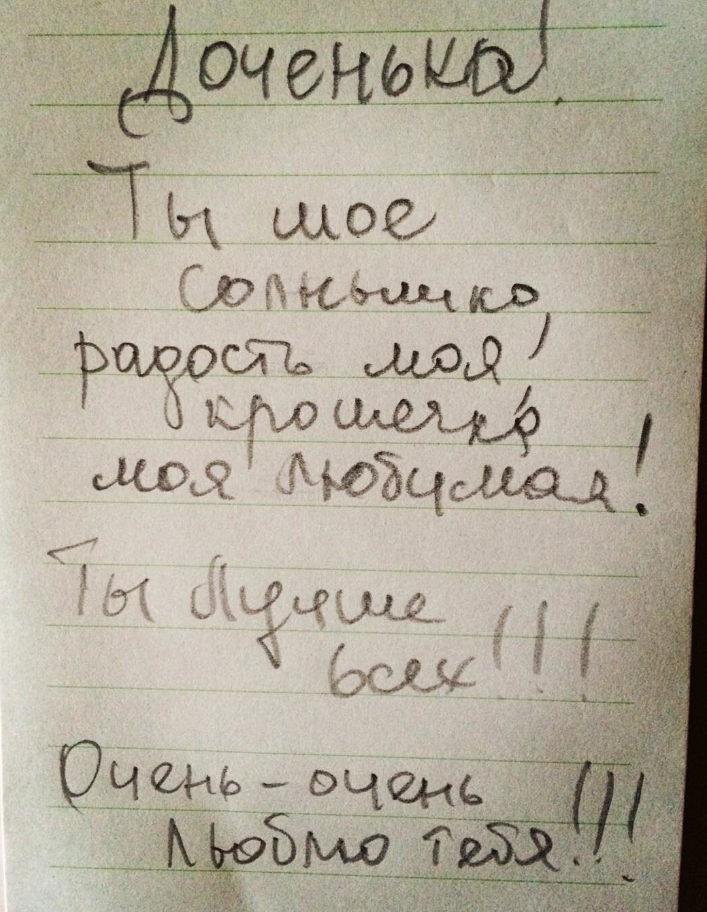 Доченька!
Ты мое
солнышко,
радость моя,
крошечка
моя любимая!
Ты лучше
всех!!!
Очень-очень
люблю тебя!!!